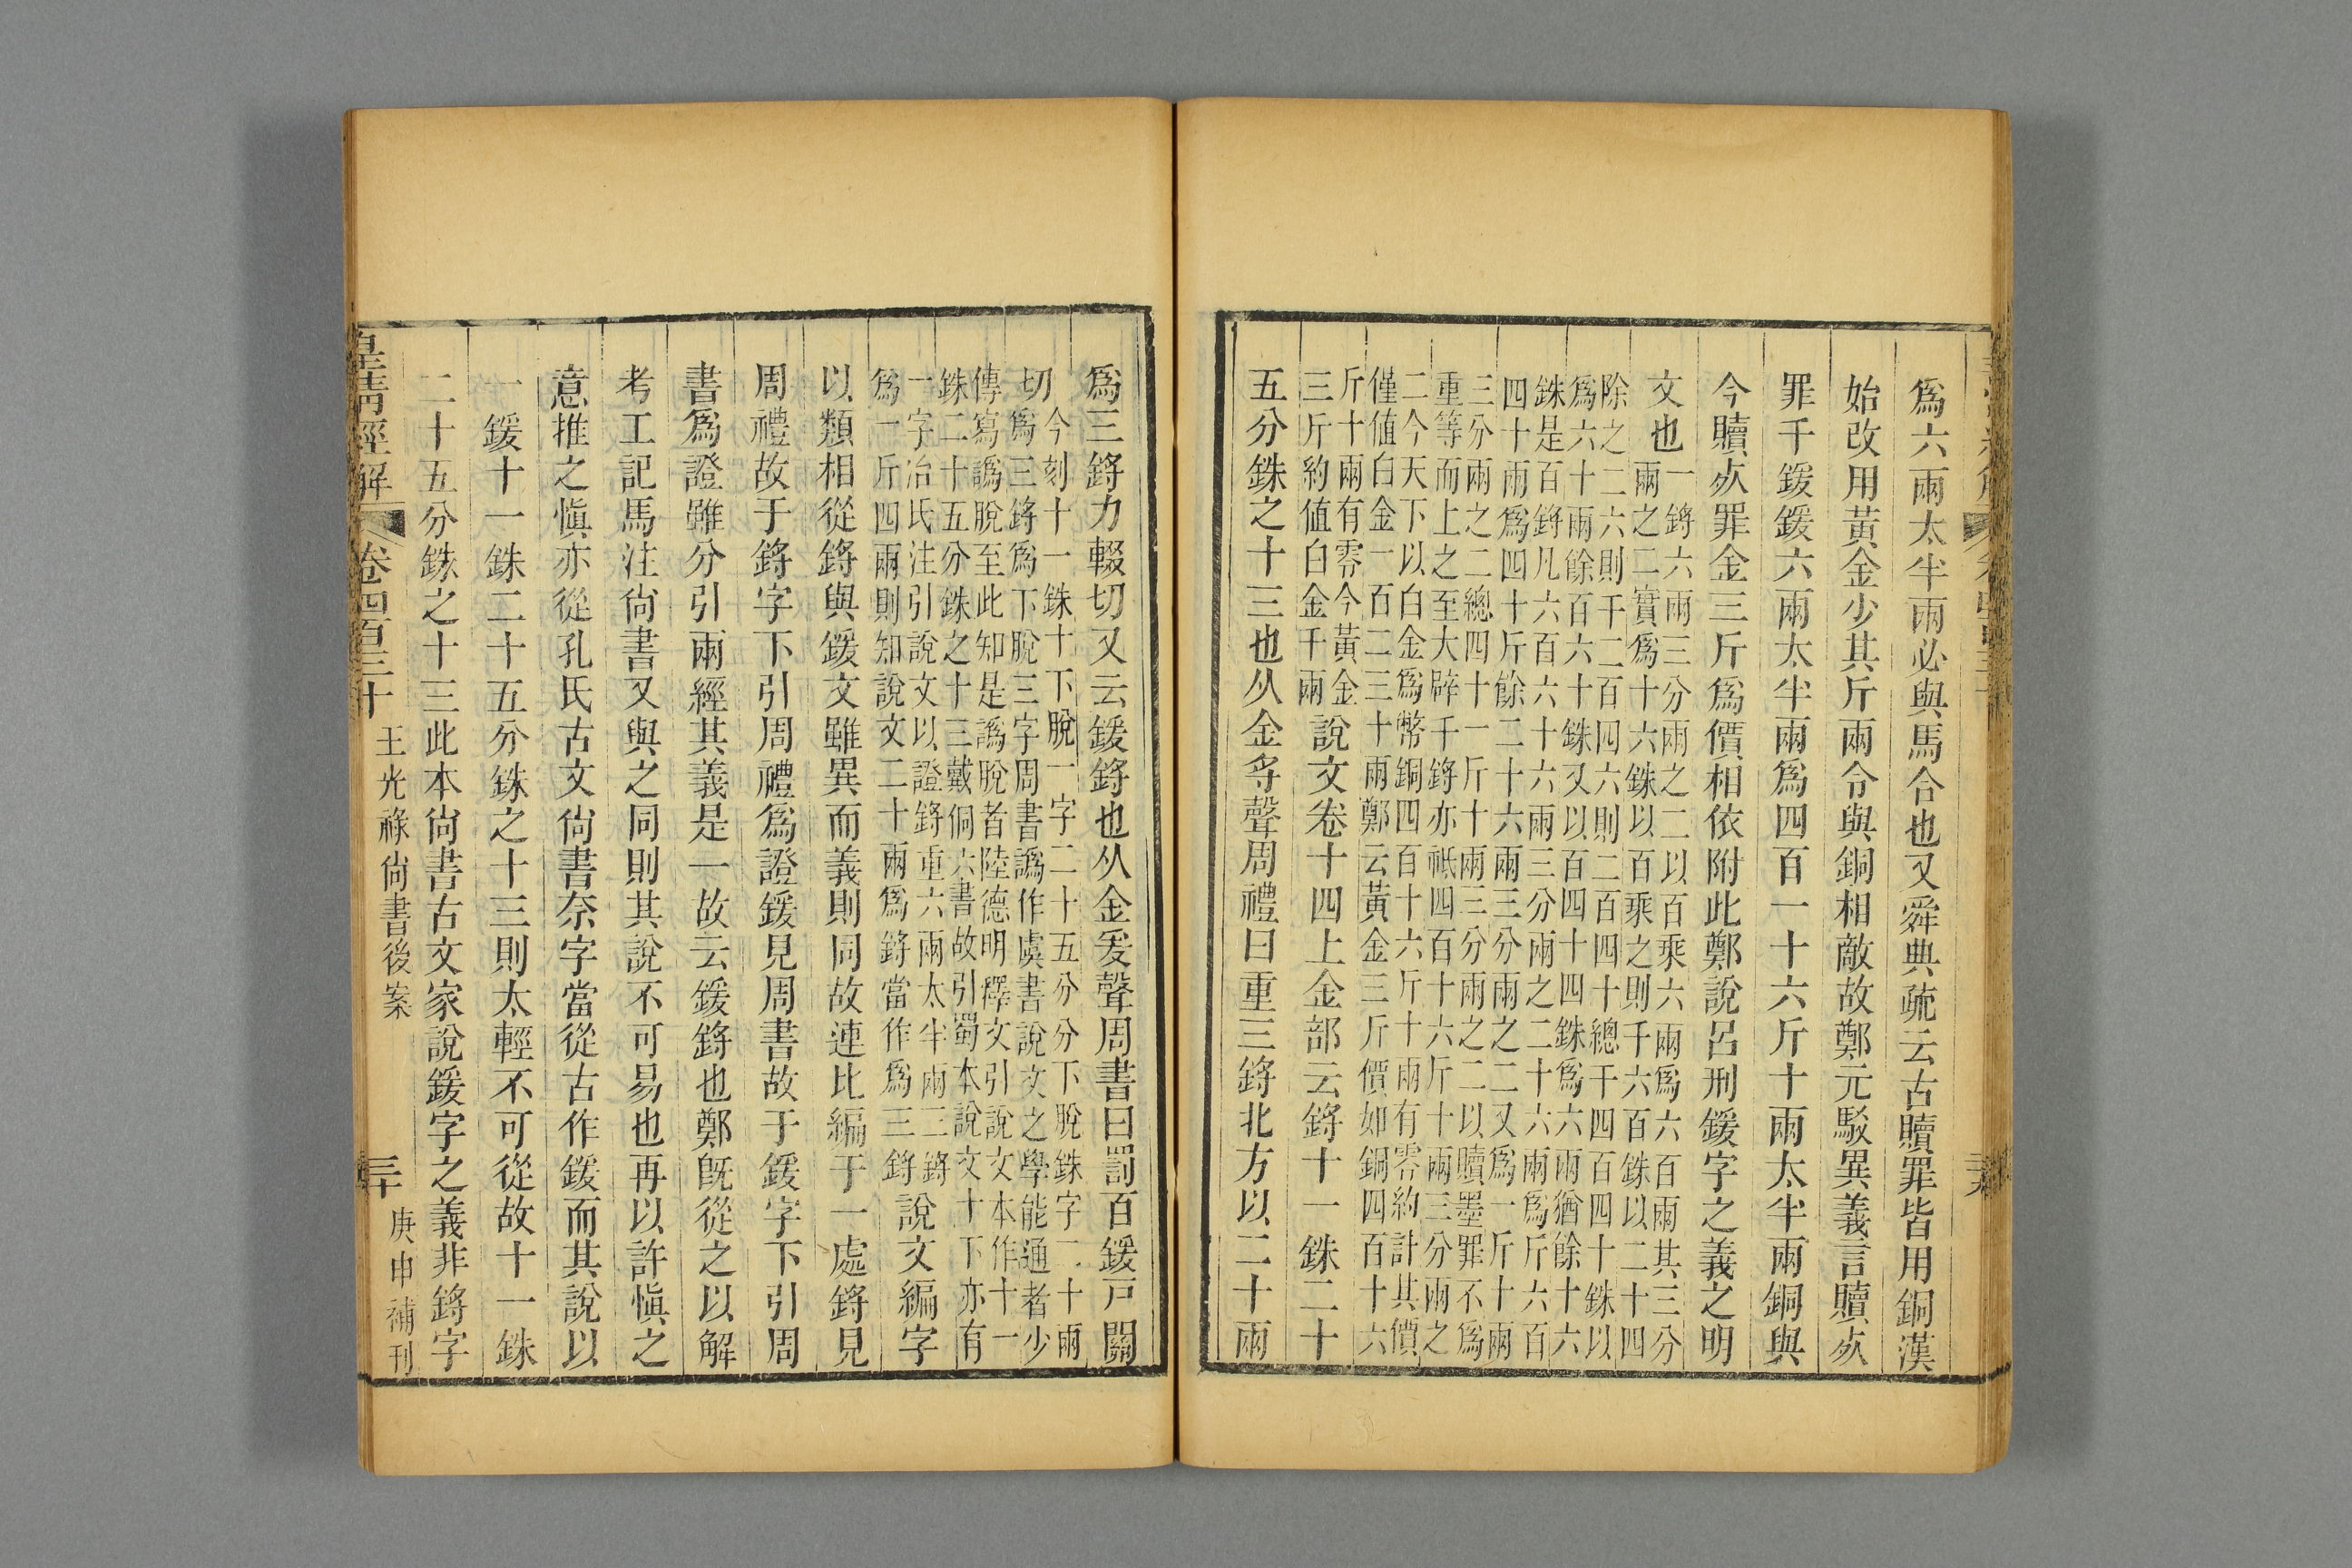 爲六兩太半兩必與馬合也又舜典疏云古贖罪皆用銅漢
始改用黃金少其斤兩令與銅相敵故鄭元駁異義言贖死
罪千鍰鍰六兩太半兩爲四百一十六斤十兩太半兩銅與
今贖死罪金三斤爲價相依附此鄭說呂刑鍰字之義之明
文也
一鋝六兩三分兩之二以百乘六兩爲六百兩其三分
兩之二實爲十六銖以百乘之則千六百銖以二十四
除之二六則千二百四六則二百四十總千四百四十銖以
爲六十兩餘百六十銖又以百四十四銖爲六兩猶餘十六
銖是百鋝凡六百六十六兩三分兩之二十六兩爲斤六百
四十兩爲四十斤餘二十六兩三分兩之二又爲一斤十兩
三分兩之二總四十一斤十兩三分兩之二以贖墨罪不爲
重等而上之至大辟千鋝亦祇四百十六斤十兩三分兩之
二今天下以白金爲幣銅四百十六斤十兩有零約計其價
僅值白金一百二三十兩鄭云黃金三斤價如銅四百十六
斤十兩有零今黃金
三斤約值白金千兩
說文卷十四上金部云鋝十一銖二十
五分銖之十三也从金寽聲周禮曰重三鋝北方以二十兩
爲三鋝力輟切又云鍰鋝也从金爰聲周書曰罰百鍰戸關
切
今刻十一銖十下脫一字二十五分分下脫銖字二十兩
爲三鋝爲下脫三字周書譌作虞書說文之學能通者少
傳寫譌脫至此知是譌脫者陸德明釋文引說文本作十一
銖二十五分銖之十三戴侗六書故引蜀本說文十下亦有
一字冶氏注引說文以證鋝重六兩太半兩三鋝
爲一斤四兩則知說文二十兩爲鋝當作爲三鋝
說文編字
以類相從鋝與鍰文雖異而義則同故連比編于一處鋝見
周禮故于鋝字下引周禮爲證鍰見周書故于鍰字下引周
書爲證雖分引兩經其義是一故云鍰鋝也鄭旣從之以解
考工記馬注尙書又與之同則其說不可易也再以許愼之
意推之愼亦從孔氏古文尙書奈字當從古作鍰而其說以
一鍰十一銖二十五分銖之十三則太輕不可從故十一銖
二十五分銖之十三此本尙書古文家說鍰字之義非鋝字
皇淸經解 卷四百三十 王光祿尙書後案 三十 庚申補刊